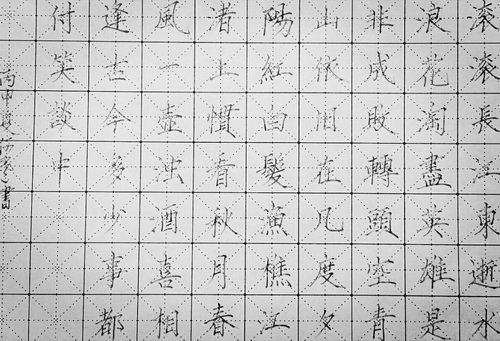 滾滾長江東逝水
浪花淘盡英雄是
非成敗轉頭空青
山依旧在几度夕
陽紅白髮漁樵江
渚上慣看秋月春
風一壺浊酒喜相
逢古今多少事都
付笑談中
丙申書